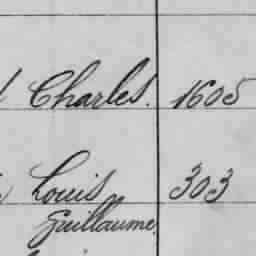 Charles. 1605
Louis 303
Guillaume.